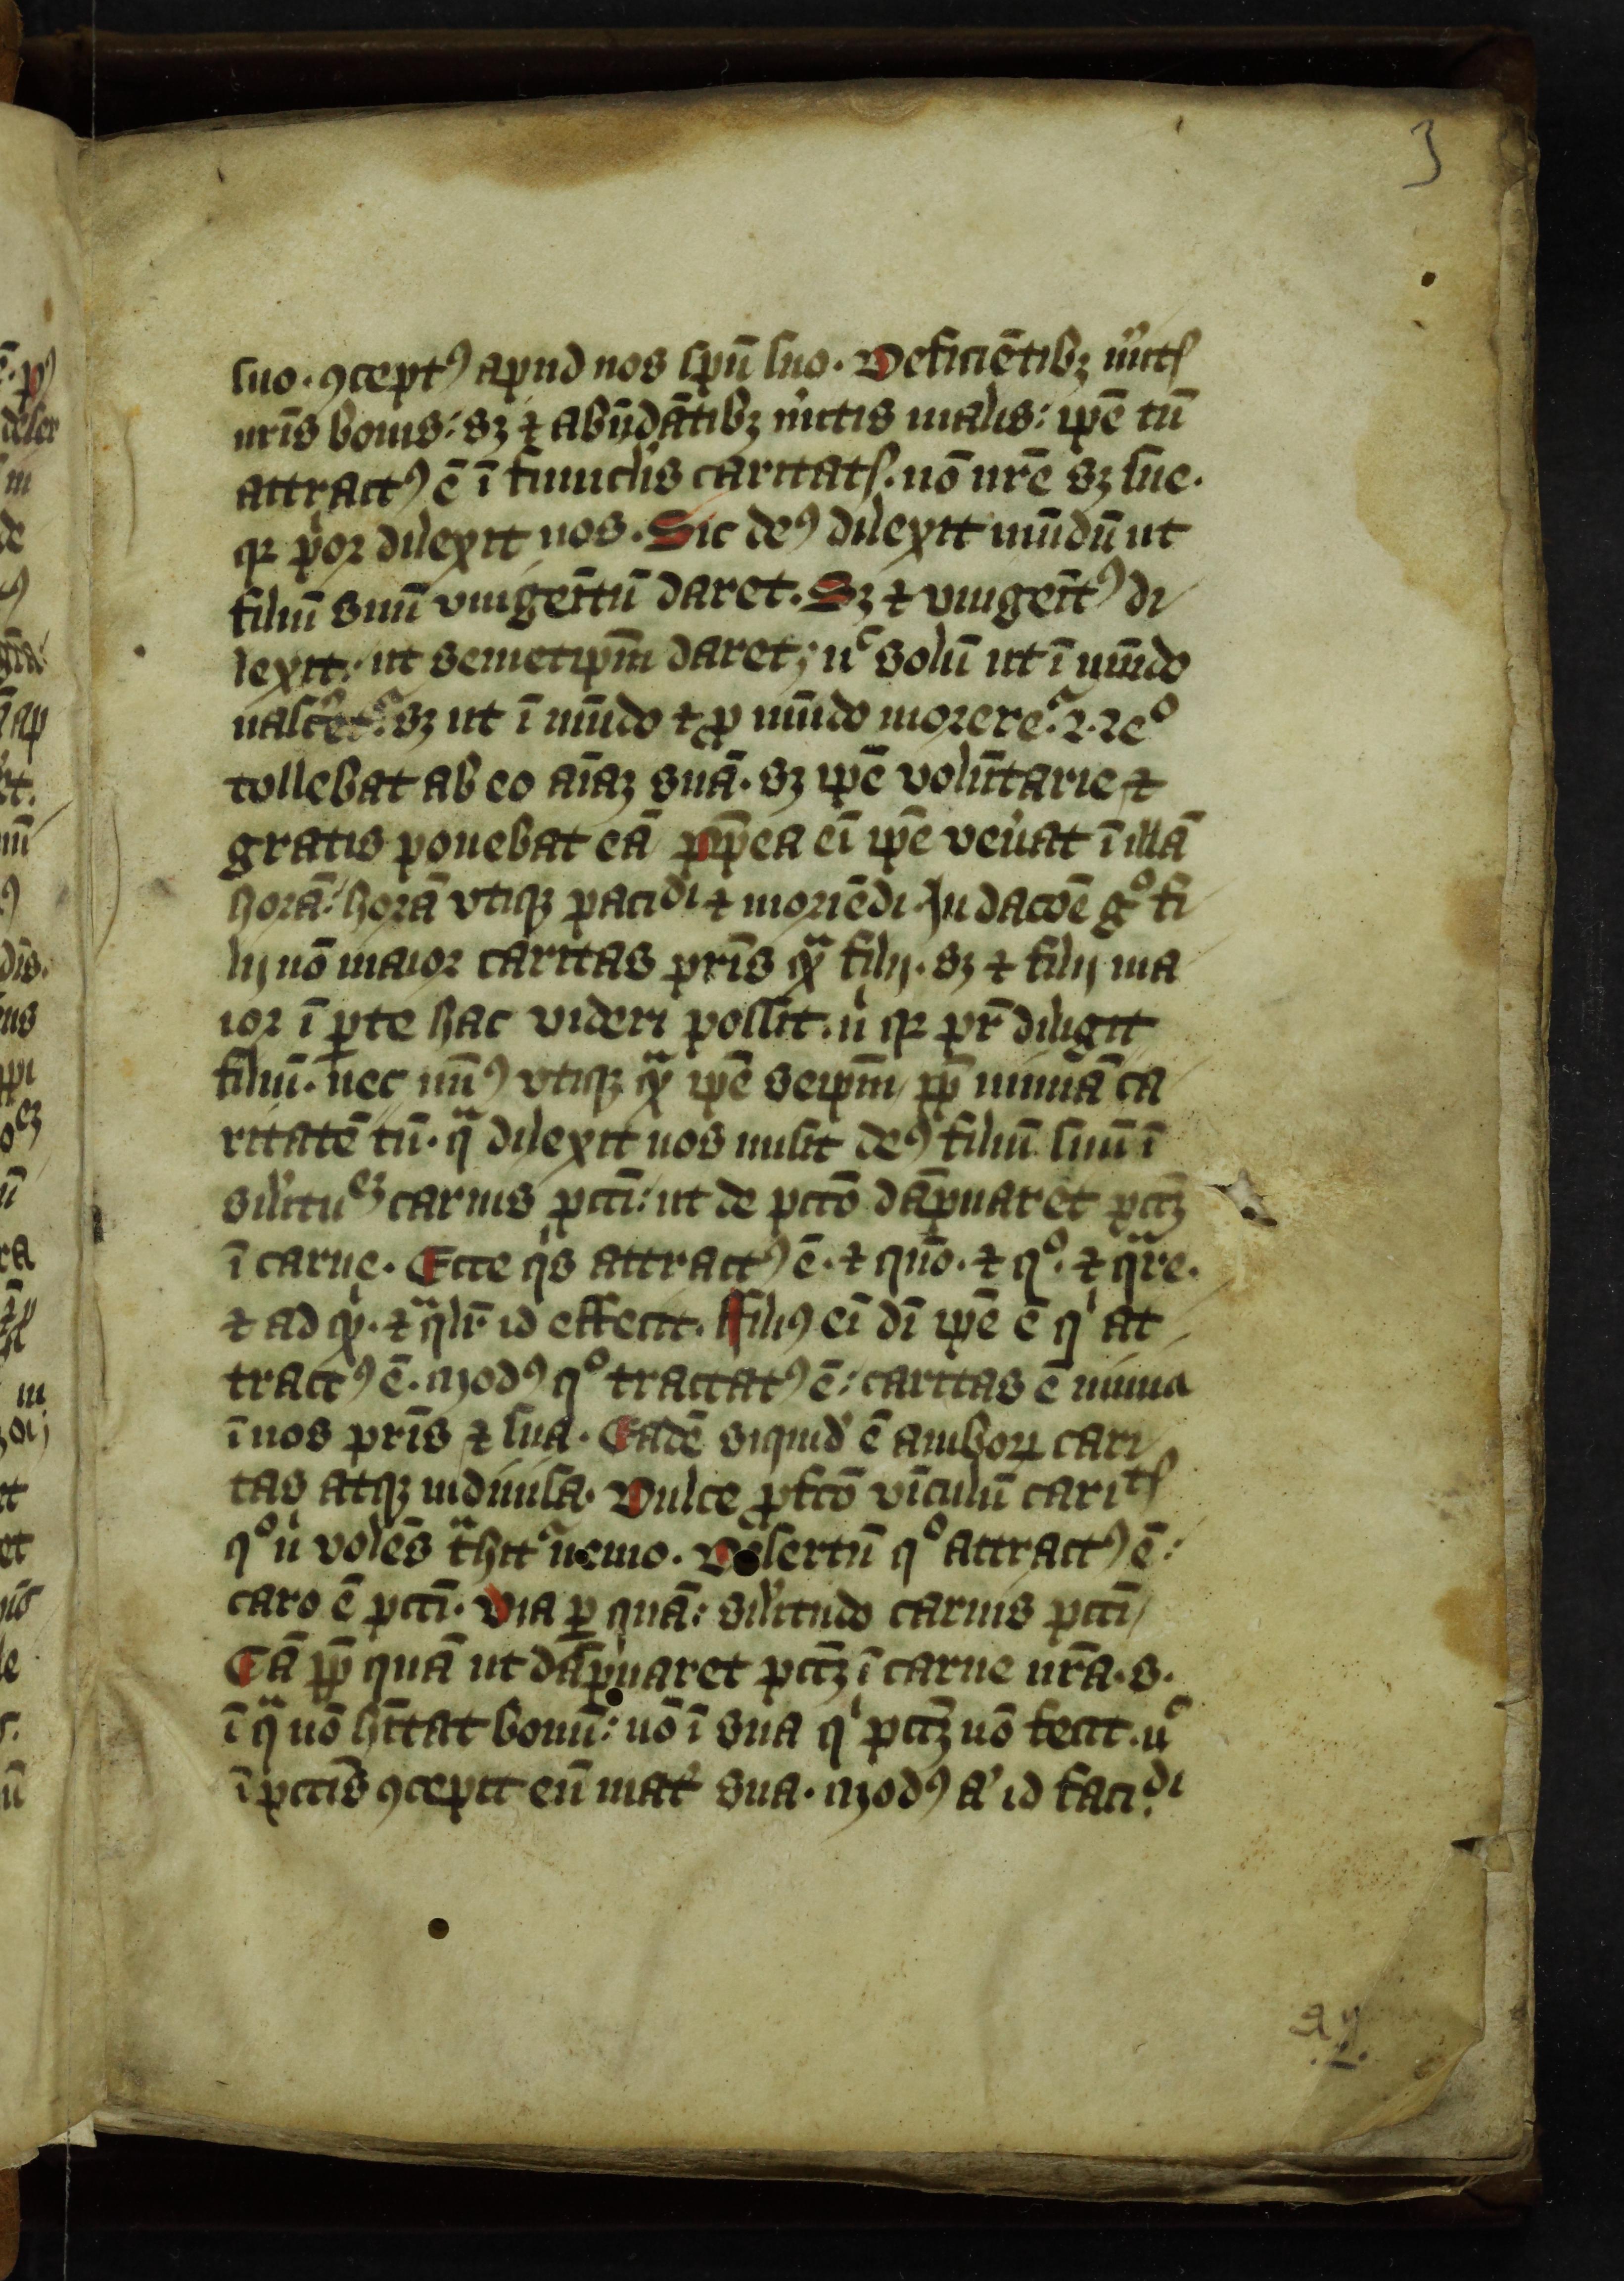 3
suo. ꝯceptꝰ apud nos spū suo. Deficiētibꝫ m̓itꝭ
nr̄is bonis: sꝫ ⁊ abūdātibꝫ m̓itis malis: ip̄e tn̄
attractꝰ ē ī funiclis caritatꝭ. nō nr̄e sꝫ sue.
qꝛ p̓or dilexit nos. Sic deꝰ dilexit mūdū ut
filiū suū vnigēitū daret. Sꝫ ⁊ vnigēitꝰ di
lexit: ut semetip̄m daret; nͨ solū ut ī mūdo
nascẽt᷑. sꝫ ut ī mūdo ⁊ ꝓ mūdo morere᷑.
tollebat ab eo aīaꝫ suā. sꝫ ip̄e volūtarie ⁊
gratis ponebat eā ꝓpēa ei̅ ip̄e veńat ī illā
horā: horā vtiqꝫ paciᵈⁱ ⁊ moriēdi. In dacōe gͦ fi
lij nō maior caritas pr̄is qͣ̄ filij. sꝫ ⁊ filij ma
ior ī ꝑte hac videri possit. ń qꝛ pr̄ diligit
filiū. nec mīꝰ vtiqꝫ qͣ̄ ip̄e seip̄m ꝓp̄ nimiā ca
ritatē tn̄. qͣ dilexit nos misit deꝰ filiū suū ī
sil̓ituᵉꝫ carnis pcc̄i: ut de pcc̄o dāpnaret pcc̄ꝫ
ī carne. Ecce qͥs attractꝰ ē. ⁊ quō. ⁊ qͦ. ⁊ qͣre.
⁊ ad qͥ. ⁊ qͣlr̄ id effecit. ffiliꝰ ei̅ di̅ ip̄e ē qͥ at
tractꝰ ē. Modꝰ qͦ tractatꝰ ē: caritas ē nimia
ī nos pr̄is ⁊ sua. Eadē siquid̓ ē amboꝝ cari
tas atqꝫ indiuisa. Dulce ꝓfcō vīculū cariᵗꝭ
qͦ ń volēs tͣhit᷑ nemo. Desertū qͦ attractꝰ ē:
caro ē pcc̄i. Via ꝑ quā: sil̓itudo carnis pcc̄i
Cā ꝓp̄ quā ut dāpnaret pcc̄ꝫ ī carne nr̄a. s.
ī qͣ nō hi̅tat bonū: nō ī sua qͥ pcc̄ꝫ nō fecit. nͨ
ī pcc̄is ꝯcepit eū mat̓ sua. Modꝰ a̓ id faciᵈⁱ